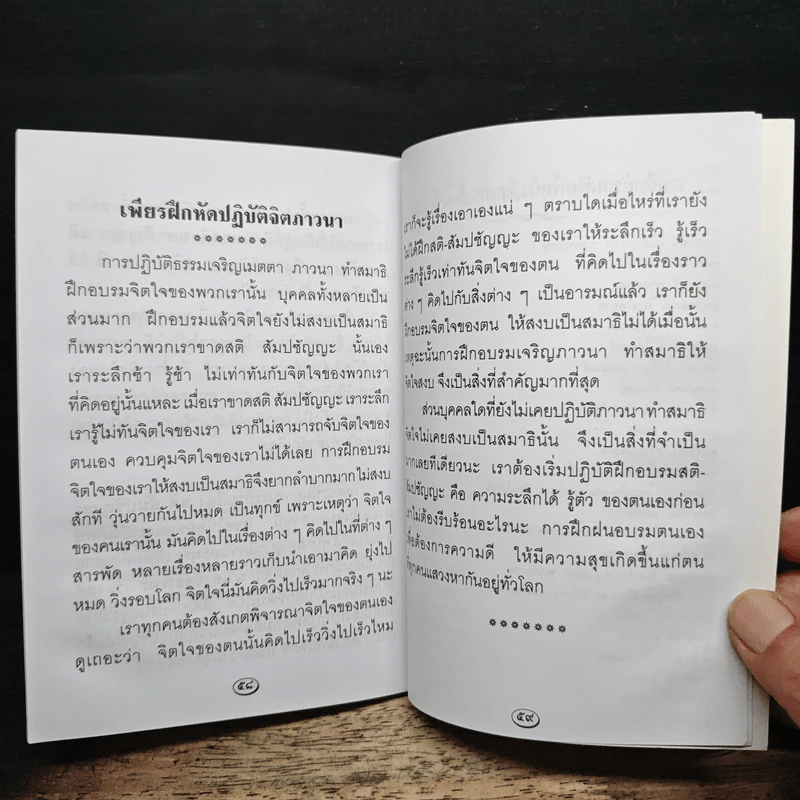 เพียรฝึกหัดปฏิบัติจิตภาวนา
*******
การปฏิบัติธรรมเจริญเมตตา ภาวนา ทำสมาธิ
ฝึกอบรมจิตใจของพวกเรานั้น บุคคลทั้งหลายเป็น
ส่วนมาก ฝึกอบรมแล้วจิตใจยังไม่สงบเป็นสมาธิ
ก็เพราะว่าพวกเราขาดสติ สัมปชัญญะ นั้นเอง
เราระลึกช้า รู้ช้า ไม่เท่าทันกับจิตใจของพวกเรา
ที่คิดอยู่นั้นแหละ เมื่อเราขาดสติ สัมปชัญญะ เราระลึก
เรารู้ไม่ทันจิตใจของเรา เราก็ไม่สามารถจับจิตใจของ
ตนเอง ควบคุมจิตใจของเราไม่ได้เลย การฝึกอบรม
จิตใจของเราให้สงบเป็นสมาธิจึงยากลำบากมากไม่สงบ
สักที วุ่นวายกันไปหมด เป็นทุกข์ เพราะเหตุว่า จิตใจ
ของคนเรานั้น มันคิดไปในเรื่องต่าง ๆ คิดไปในที่ต่าง ๆ
สารพัด หลายเรื่องหลายราวเก็บนำเอามาคิด ยุ่งไป
หมด วิ่งรอบโลก จิตใจนี่มันคิดวิ่งไปเร็วมากจริง ๆ นะ
เราทุกคนต้องสังเกตพิจารณาจิตใจของตนเอง
ดูเถอะว่า จิตใจของตนนั้นคิดไปเร็ววิ่งไปเร็วไหม
๕๘
เราก็จะรู้เรื่องเอาเองแน่ ๆ ตราบใดเมื่อไหร่ที่เรายัง
ไม่ได้ฝึกสติ-สัมปชัญญะ ของเราให้ระลึกเร็ว รู้เร็ว
ระลึกรู้เร็วเท่าทันจิตใจของตน ที่คิดไปในเรื่องราว
ต่าง ๆ คิดไปกับสิ่งต่าง ๆ เป็นอารมณ์แล้ว เราก็ยัง
ฝึกอบรมจิตใจของตน ให้สงบเป็นสมาธิไม่ได้เมื่อนั้น
เหตุฉะนั้นการฝึกอบรมเจริญภาวนา ทำสมาธิให้
จิตใจสงบ จึงเป็นสิ่งที่สำคัญมากที่สุด
ส่วนบุคคลใดที่ยังไม่เคยปฏิบัติภาวนา ทำสมาธิ
จิตใจไม่เคยสงบเป็นสมาธินั้น จึงเป็นสิ่งที่จำเป็น
มากเลยทีเดียวนะ เราต้องเริ่มปฏิบัติฝึกอบรมสติ-
สัมปชัญญะ คือ ความระลึกได้ รู้ตัว ของตนเองก่อน
เราไม่ต้องรีบร้อนอะไรนะ การฝึกฝนอบรมตนเอง
เพื่อต้องการความดี ให้มีความสุขเกิดขึ้นแก่ตน
ที่ทุกคนแสวงหากันอยู่ทั่วโลก
*******
๕๙